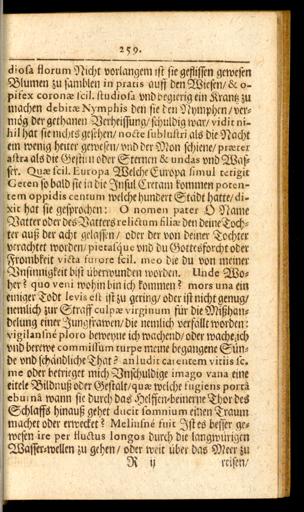 259.
diosa florum Nicht vorlangem ist sie geflissen gewesen
Blumen zu samblen in pratis auff den Wiesen/ & o-
pifex coronæ scil. studiosa und begierig ein Krantz zu
machen debitæ Nymphis den sie den Nymphen/ ver-
mög der gethanen Verheissung/ schuldig war/ vidit ni-
hil hat sie nichts gesehen/ nocte sublustri als die Nacht
ein wenig heiter gewesen/ und der Mon schiene/ præter
astra als die Gestirn oder Sternen & undas und Was-
ser. Quæ scil. Europa Welche Europa simul tetigit
Creten so bald sie in die Insul Cretam kommen poten-
tem oppidis centum welche hundert Städt hatte/ di-
xit hat sie gesprochen: O nomen pater O Name
Vatter oder des Vatters relictum filiæ den deine Toch-
ter auß der acht gelassen/ oder der von deiner Tochter
verachtet worden/ pietasque und du Gottesforcht oder
Frombkeit victa furore scil. meo die du von meiner
Unsinnigkeit bist überwunden worden. Unde Wo-
her? quo veni wohin bin ich kommen? mors una ein
einiger Todt levis est ist zu gering/ oder ist nicht genug/
nemlich zur Straff culpæ virginum für die Mißhan-
delung einer Jungfrawen/ die nemlich verfällt worden:
vigilansne ploro beweyne ich wachend/ oder wache ich
und berewe commissum turpe meine begangene Sün-
de und schändliche That? an ludit carentem vitiis sc.
me oder betrieget mich Unschuldige imago vana eine
eitele Bildnuß oder Gestalt/ quæ welche fugiens portâ
eburnâ wann sie durch das Helffen-beinerne Thor des
Schlaffs hinauß gehet ducit somnium einen Traum
machet oder erwecket? Meliusne fuit Ist es besser ge-
wesen ire per fluctus longos durch die langwirigen
Wasserwellen zu gehen/ oder weit über das Meer zu
R ij reisen/